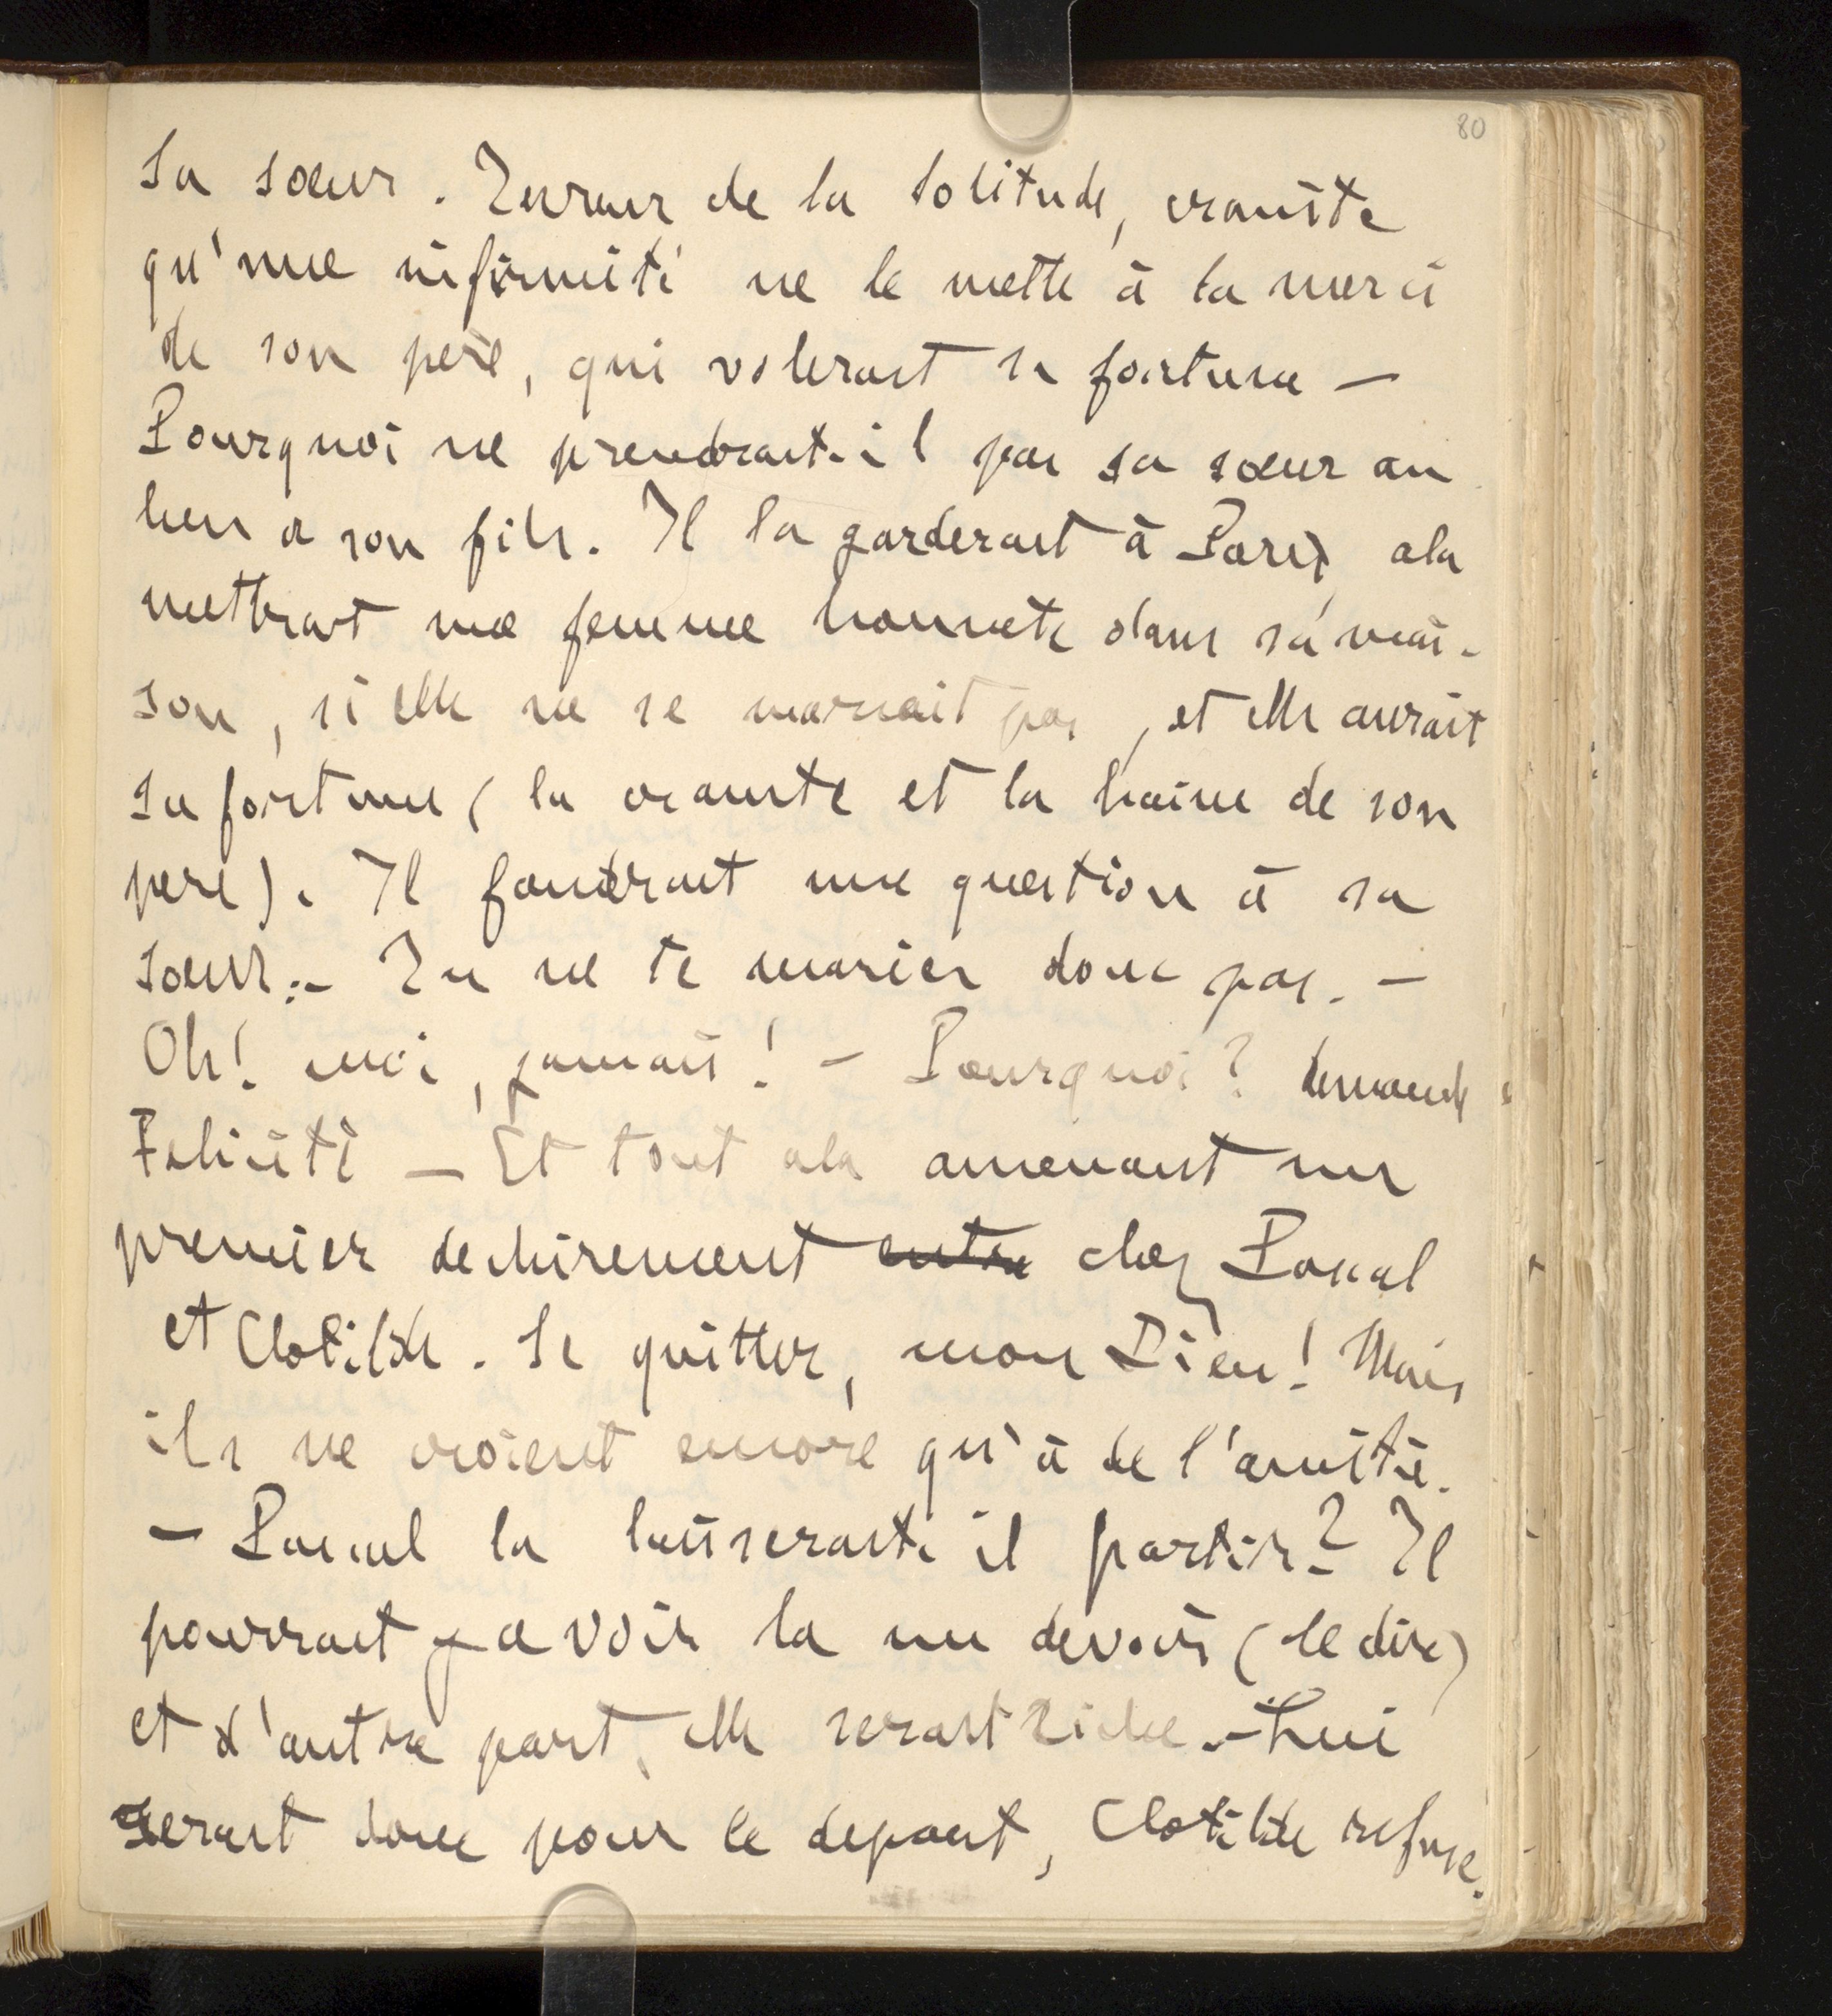 80
sa sœur. Terreur de la solitude, crainte
qu'une infirmité ne le mette à la merci
de son père, qui volerait sa fortune –
Pourquoi ne prendrait-il pas sa sœur au
lieu de son fils. Il la garderait à Paris, cela
mettrait une femme honnête dans sa mai-
son, si elle ne se mariait pas, et elle aurait
sa fortune (la crainte et la haine de son
père). Il faudrait une question à sa
sœur :– Tu ne te maries donc pas. –
Oh! moi, jamais! – Pourquoi? demande
Félicité – Et tout cela amenant un
premier dechirement entre chez Pascal
et Clotilde. Se quitter, mon Dieu! Mais
ils ne croient encore qu'à de l'amitié.
– Pascal la laisserait-il partir? Il
pourrait y avoir la un devoir (le dire)
et d'autre part, elle serait riche. – Lui
serait donc pour le depart, Clotilde refuse.